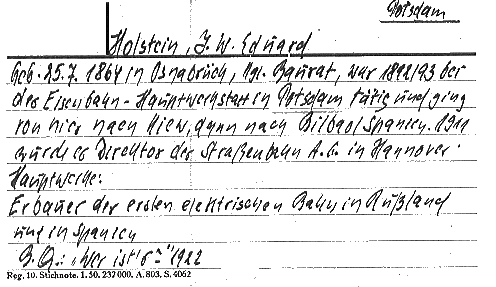 Potsdam
Holstein, J. W. Eduard
geb. 25.7. 1864 in Osnabrück, Kgl. Baurat, war 1892/93 bei
der Eisenbahn-Hauptwerkstatt in Potsdam tätig und ging
von hier nach Kiew, dann nach Bilbao/Spanien. 1911
wurde er Direktor der Straßenbahn A.G. in Hannover.
Hauptwerke:
Erbauer der ersten elektrischen Bahn in Rußland
und in Spanien
B.Q.: "Wer ist's" 1922
Reg. 10. Stichnote. 1. 50. 237 000. A. 803. S. 4062